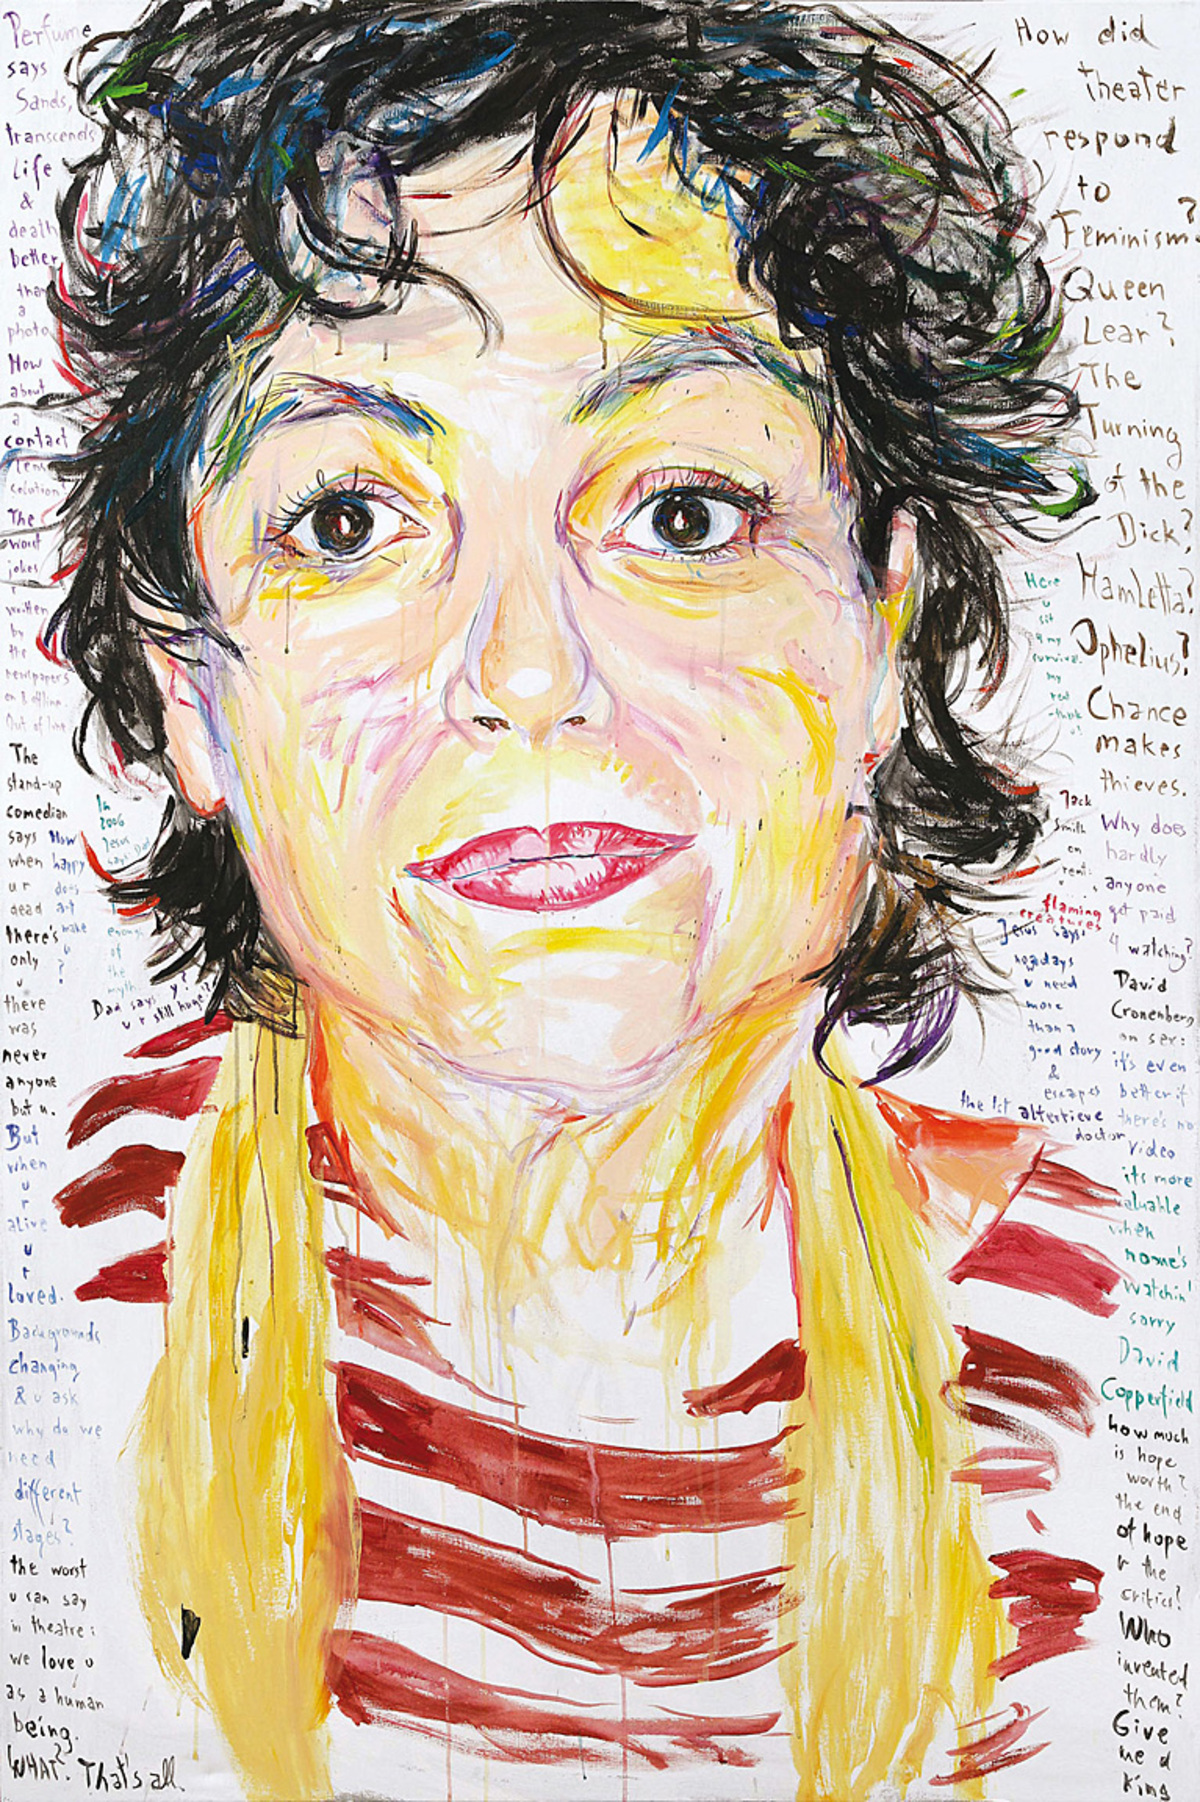 Perfume
says
Sands,
transcends
Life
&
death
better
than
a
photo.
How
about
a
contact
lens
solution?
The
worst
jokes
r
written
by
the
newspapers
on & offline.
Out of line
The
stand-up
comedian
says
when
u r
dead
there's
only
u
there
was
never
anyone
but u.
But
when
u
r
alive
u
r
loved.
Backgrounds
changing
& u ask
why do we
need
different
stages?
the worst
u can say
in theatre:
we love u
as a human
being.
WHAT? That's all.
How
happy
does
art
make
u
?
In
2006
Jesus
says: Dad
enough
of
the
myth
Dad says y?
u r still huge!
How did
theater
respond
to
Feminism?
Queen
Lear?
The
Turning
of the
Dick?
Hamletta?
Ophelius?
Chance
makes
thieves.
Why does
hardly
anyone
get paid
4 watching?
David
Cronenberg
on sex:
it's even
better if
there's no
video
its more
valuable
when
noone's
watchin'
sorry
David
Copperfield
how much
is hope
worth?
the end
of hope
r the
critics?
Who
invented
them?
Give
me a
King
Here
u
sit
4 my
survival.
my
rent
-think
u!
Jack
Smith
on
rent:
flaming
creatures
Jesus says:
nowadays
u need
more
than a
good story
&
escapes
the 1st
doctor